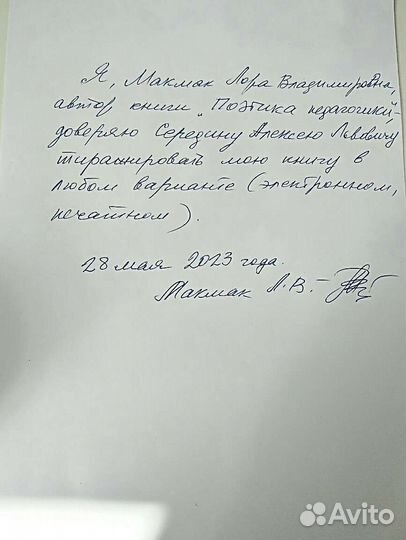 Я, Макмак Лора Владимировна,
автор книги „Поэтика педагогики",
доверяю Середину Алексею Львовичу
тиражировать мою книгу в
любом варианте (электронном,
печатном).
28 мая 2023 года.
Макмак Л.В. –
Avito